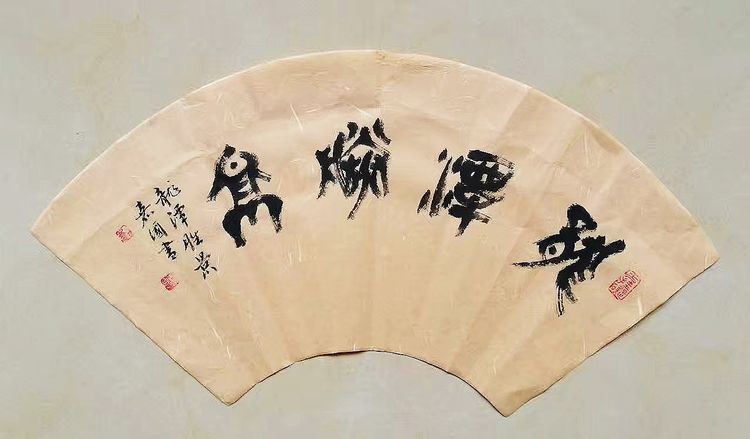 龍潭勝景
龍潭胜景
國書